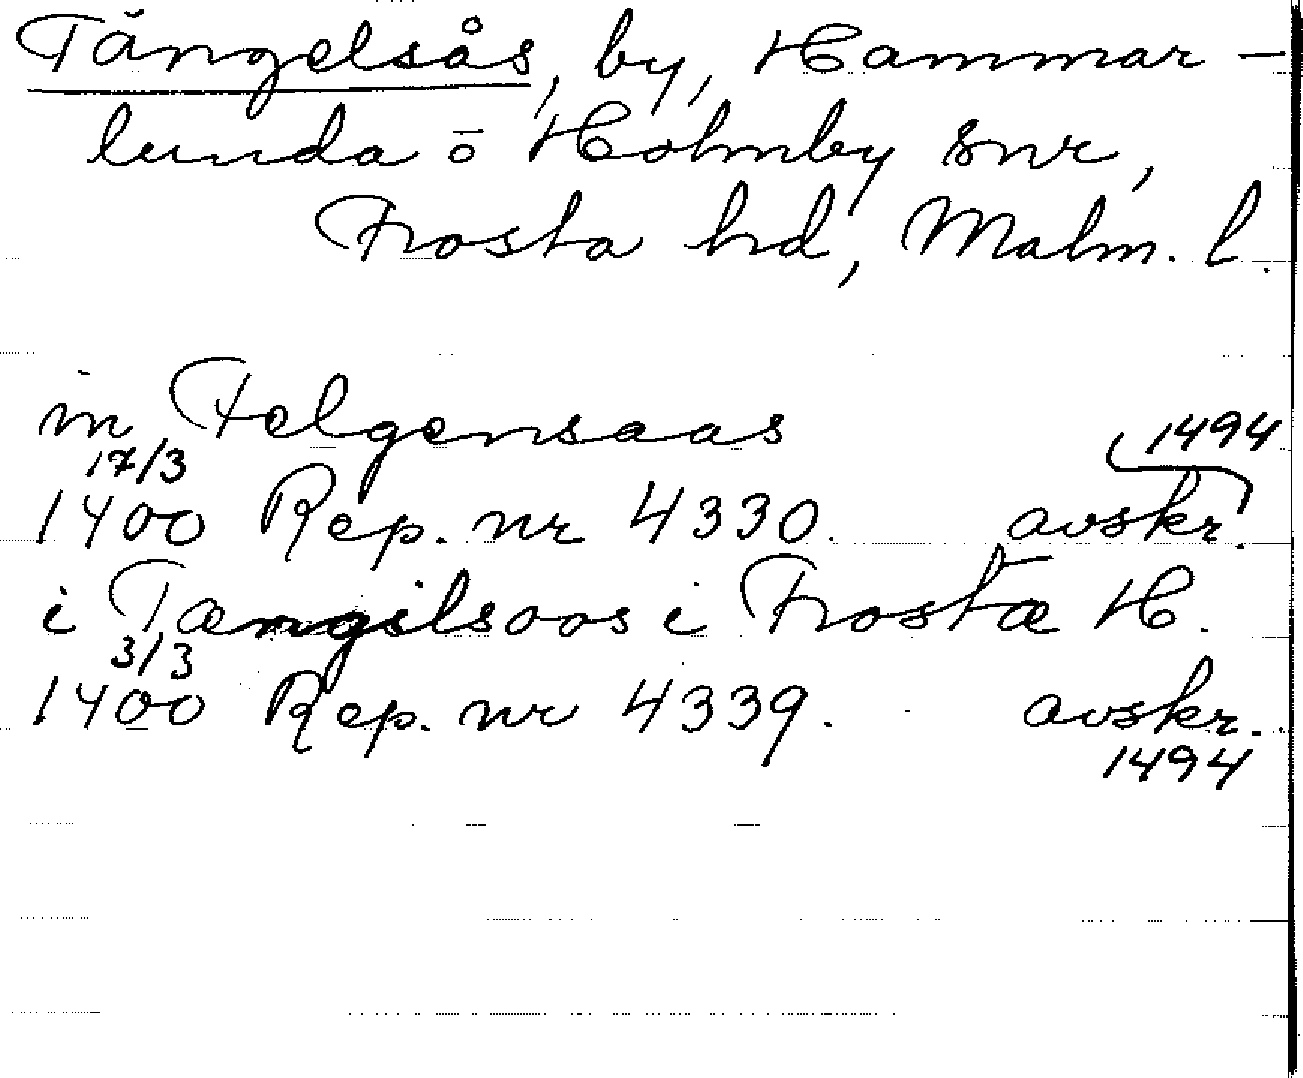 Tängelsås, by, Hammar-
lunda ō Holmby snr,
Frosta hd, Malm. l.
in Felgensaas
17/3 1494
1400 Rep. nr 4330. avskr.
i Tængilsoos i Frostæ H.
3/3
1400 Rep. nr 4339. avskr.
1494